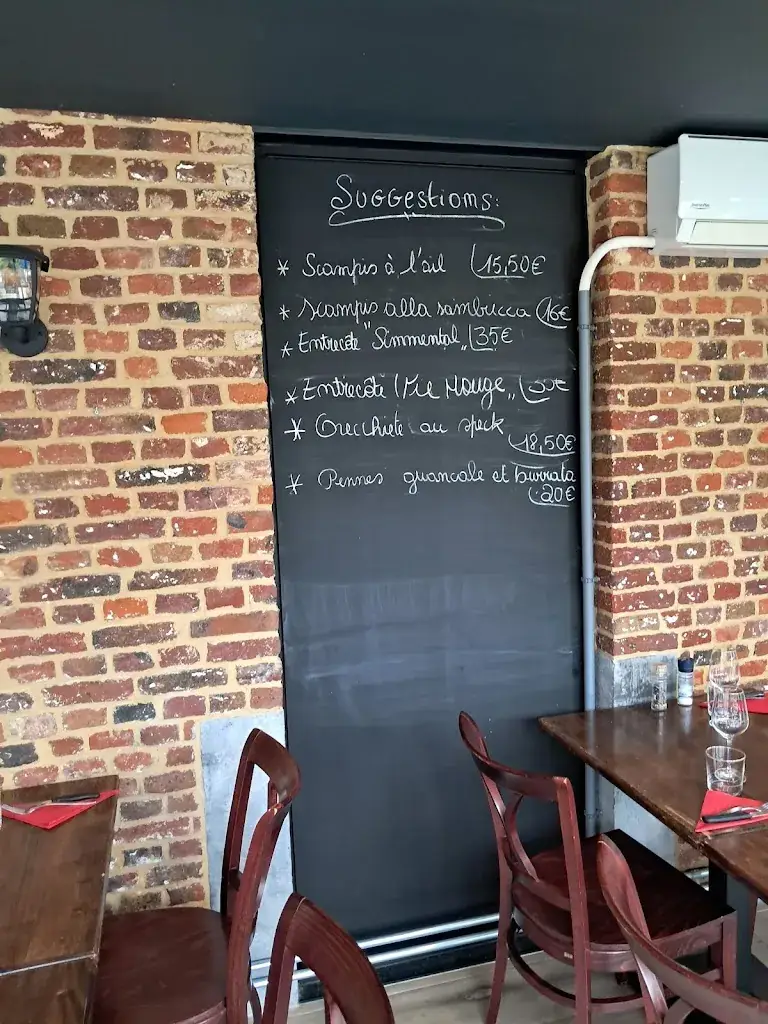 Suggestions:
* Scampis à l'ail 15,50€
* Scampis alla sambucca 16€
* Entrecote "Simmental„ 35€
* Entrecote "Pie Rouge„
* Orecchiete au speck
18,50€
* Pennes guanciale et burrata
20€